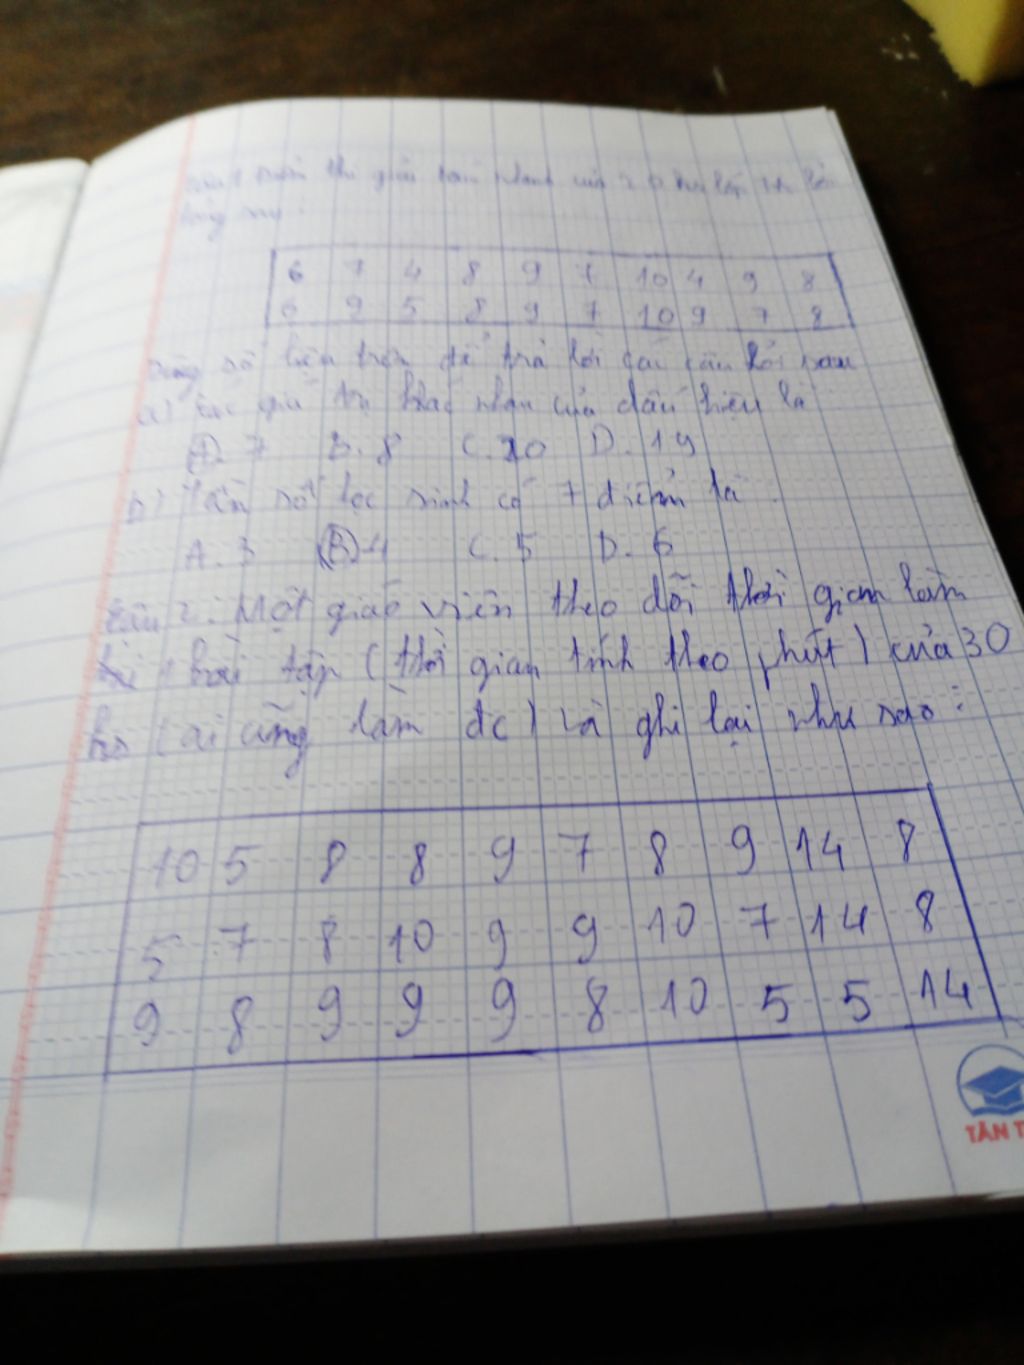 giải của 20 lớp
6 7 4 8 9 7 10 4 9 8
6 9 5 8 9 7 10 9 7 8
Dùng số liệu trên để trả lời các câu hỏi sau
a) Các giá trị khác nhau của dấu hiệu là
A. 7 B. 8 C. 20 D. 19
b) Tần số học sinh có 7 điểm là
A. 3 B. 4 C. 5 D. 6
Câu 2: Một giáo viên theo dõi thời gian làm
1 bài tập (thời gian tính theo phút) của 30
hs (ai cũng làm đc) và ghi lại như sau:
10 5 8 8 9 7 8 9 14 8
5 7 8 10 9 9 10 7 14 8
9 8 9 9 9 8 10 5 5 14
TÂN T